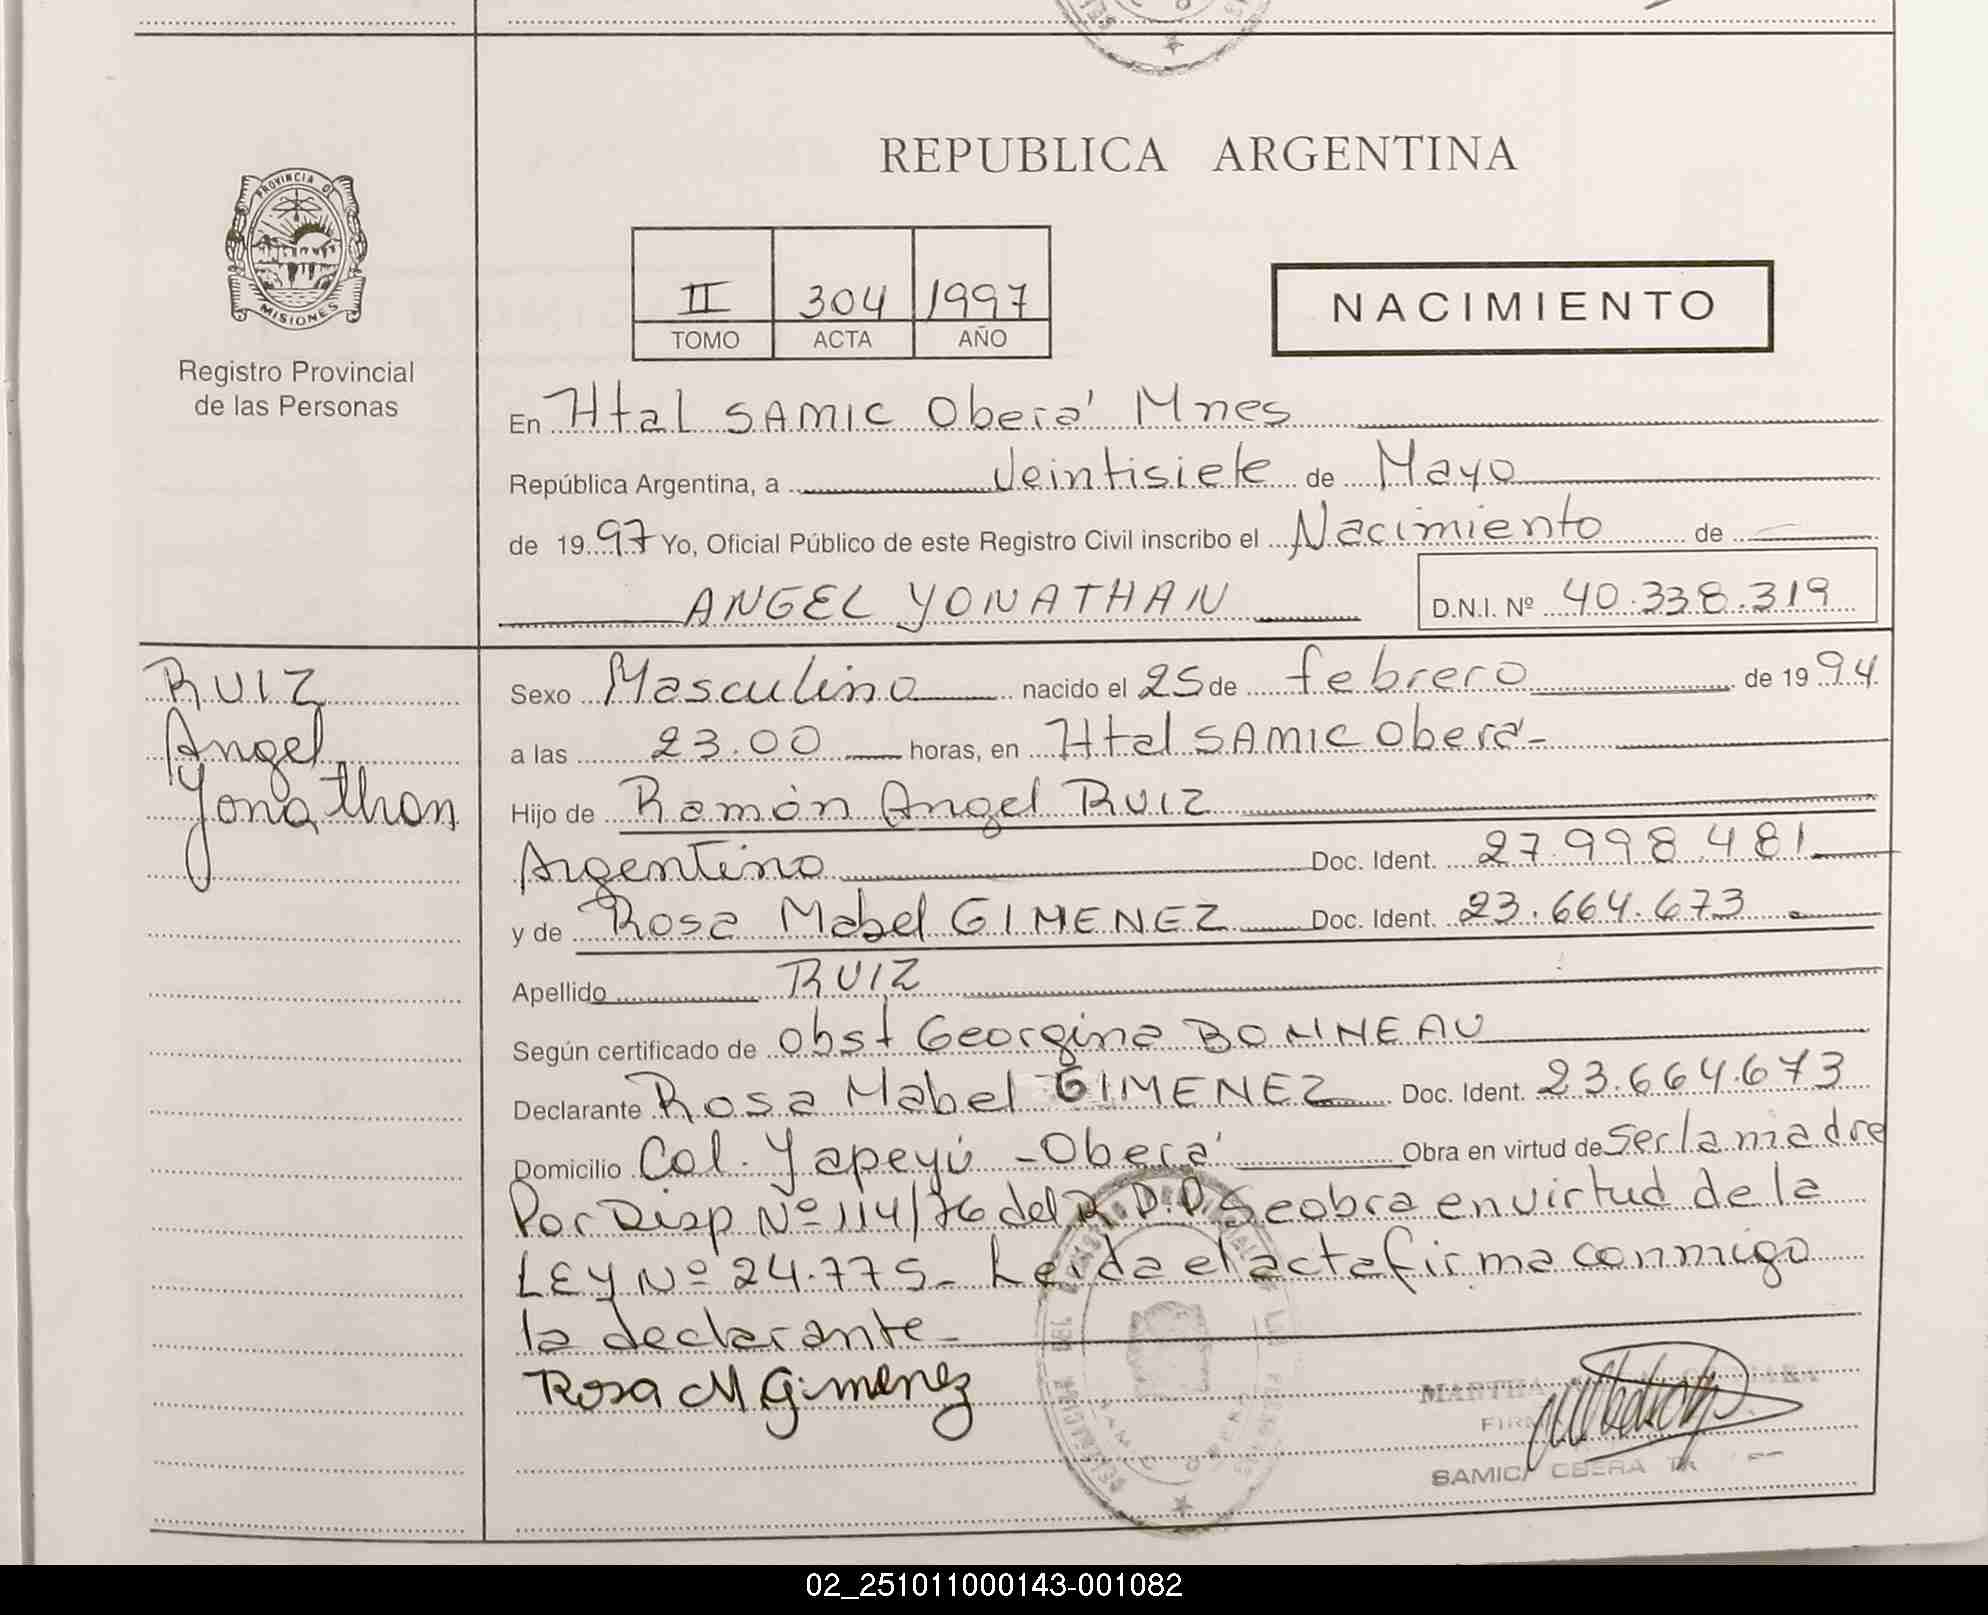 REPUBLICA ARGENTINA
PROVINCIA DE
MISIONES
Registro Provincial
de las Personas
II 304 1997
TOMO ACTA AÑO
NACIMIENTO
En Htal SAMIC Oberá Mnes
República Argentina, a Veintisiete de Mayo
de 1997 Yo, Oficial Público de este Registro Civil inscribo el Nacimiento de
ANGEL YONATHAN D.N.I. Nº 40.338.319
RUIZ
Angel
Yonathan
Sexo Masculino nacido el 25 de febrero de 1994
a las 23.00 horas, en Htal SAMIC Oberá-
Hijo de Ramón Angel RUIZ
Argentino Doc. Ident. 27.998.481
y de Rosa Mabel GIMENEZ Doc. Ident. 23.664.673
Apellido RUIZ
Según certificado de Obst Georgina BONNEAU
Declarante Rosa Mabel GIMENEZ Doc. Ident. 23.664.673
Domicilio Col. Yapeyú - Oberá Obra en virtud de Ser la madre
Por Disp Nº 114/76 del R.D.P. Se obra en virtud de la
LEY Nº 24.775- Leida el acta firma conmigo
la declarante-
Rosa M Gimenez
MARTHA
SAMIC OBERA
02_251011000143-001082